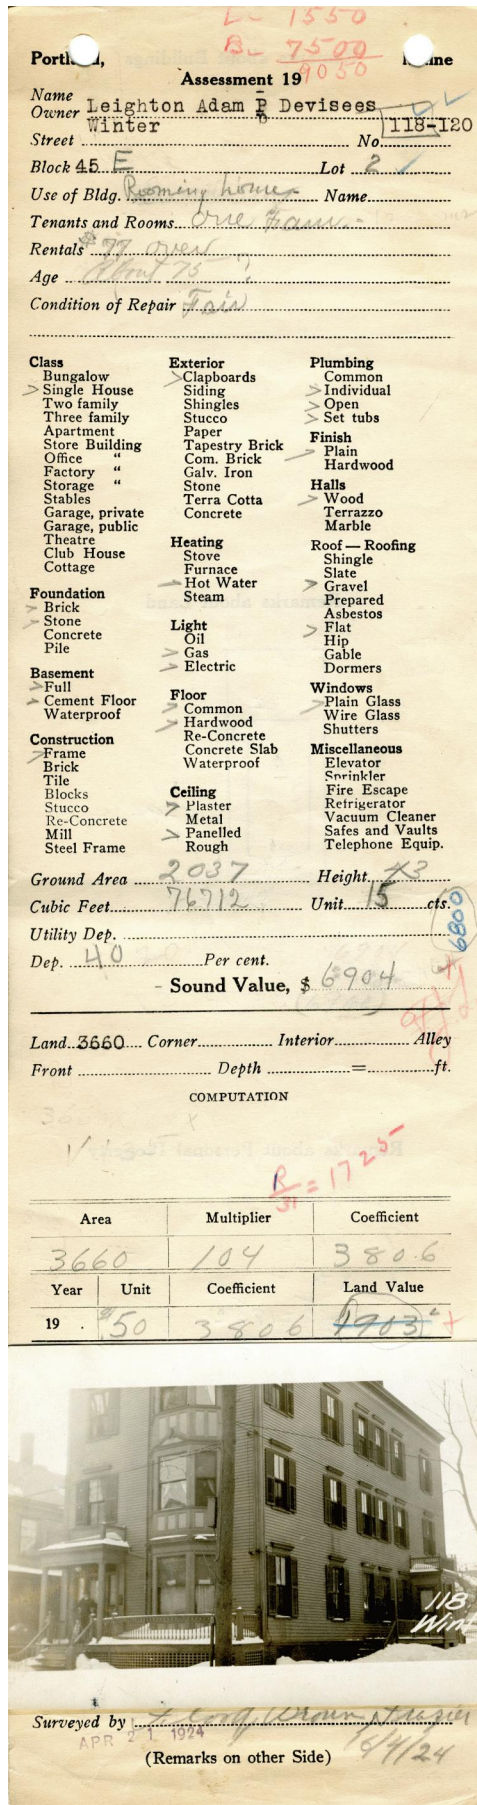 L- 1550
B- 7500
9050
Portland, Maine
Assessment 19
Name
Owner Leighton Adam P Devisees
Street Winter No. 118-120
Block 45 E Lot 2
Use of Bldg. Rooming house Name
Tenants and Rooms one Fam.
Rentals $77 over
Age About 75
Condition of Repair Fair
Class
Bungalow
Single House
Two family
Three family
Apartment
Store Building
Office "
Factory "
Storage "
Stables
Garage, private
Garage, public
Theatre
Club House
Cottage
Foundation
Brick
Stone
Concrete
Pile
Basement
Full
Cement Floor
Waterproof
Construction
Frame
Brick
Tile
Blocks
Stucco
Re-Concrete
Mill
Steel Frame
Exterior
Clapboards
Siding
Shingles
Stucco
Paper
Tapestry Brick
Com. Brick
Galv. Iron
Stone
Terra Cotta
Concrete
Heating
Stove
Furnace
Hot Water
Steam
Light
Oil
Gas
Electric
Floor
Common
Hardwood
Re-Concrete
Concrete Slab
Waterproof
Ceiling
Plaster
Metal
Panelled
Rough
Plumbing
Common
Individual
Open
Set tubs
Finish
Plain
Hardwood
Halls
Wood
Terrazzo
Marble
Roof — Roofing
Shingle
Slate
Gravel
Prepared
Asbestos
Flat
Hip
Gable
Dormers
Windows
Plain Glass
Wire Glass
Shutters
Miscellaneous
Elevator
Sprinkler
Fire Escape
Refrigerator
Vacuum Cleaner
Safes and Vaults
Telephone Equip.
Ground Area 2037 Height 43
Cubic Feet 76712 Unit 15 cts.
6800
Utility Dep.
Dep. 40 Per cent.
Sound Value, $ 6904
Land 3660 Corner Interior Alley
Front Depth = ft.
COMPUTATION
R/31 = 1725
Area Multiplier Coefficient
3660 104 3806
Year Unit Coefficient Land Value
19 . $50 3806 1903
118
Wint
Surveyed by
APR 21 1924
6/4/24
(Remarks on other Side)